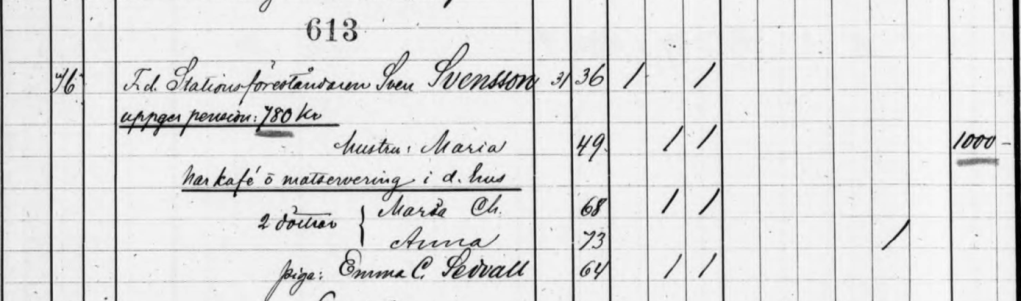 613
76 F.d. Stationsföreståndaren Sven Svensson 31 36 / /
uppger pension: 780 Kr
hustru: Maria 49 / / 1000 -
har kafé o matservering i d. hus
2 döttrar { Maria Ch. 68 / /
Anna 73 /
piga: Emma C. Sedvall 64 / /